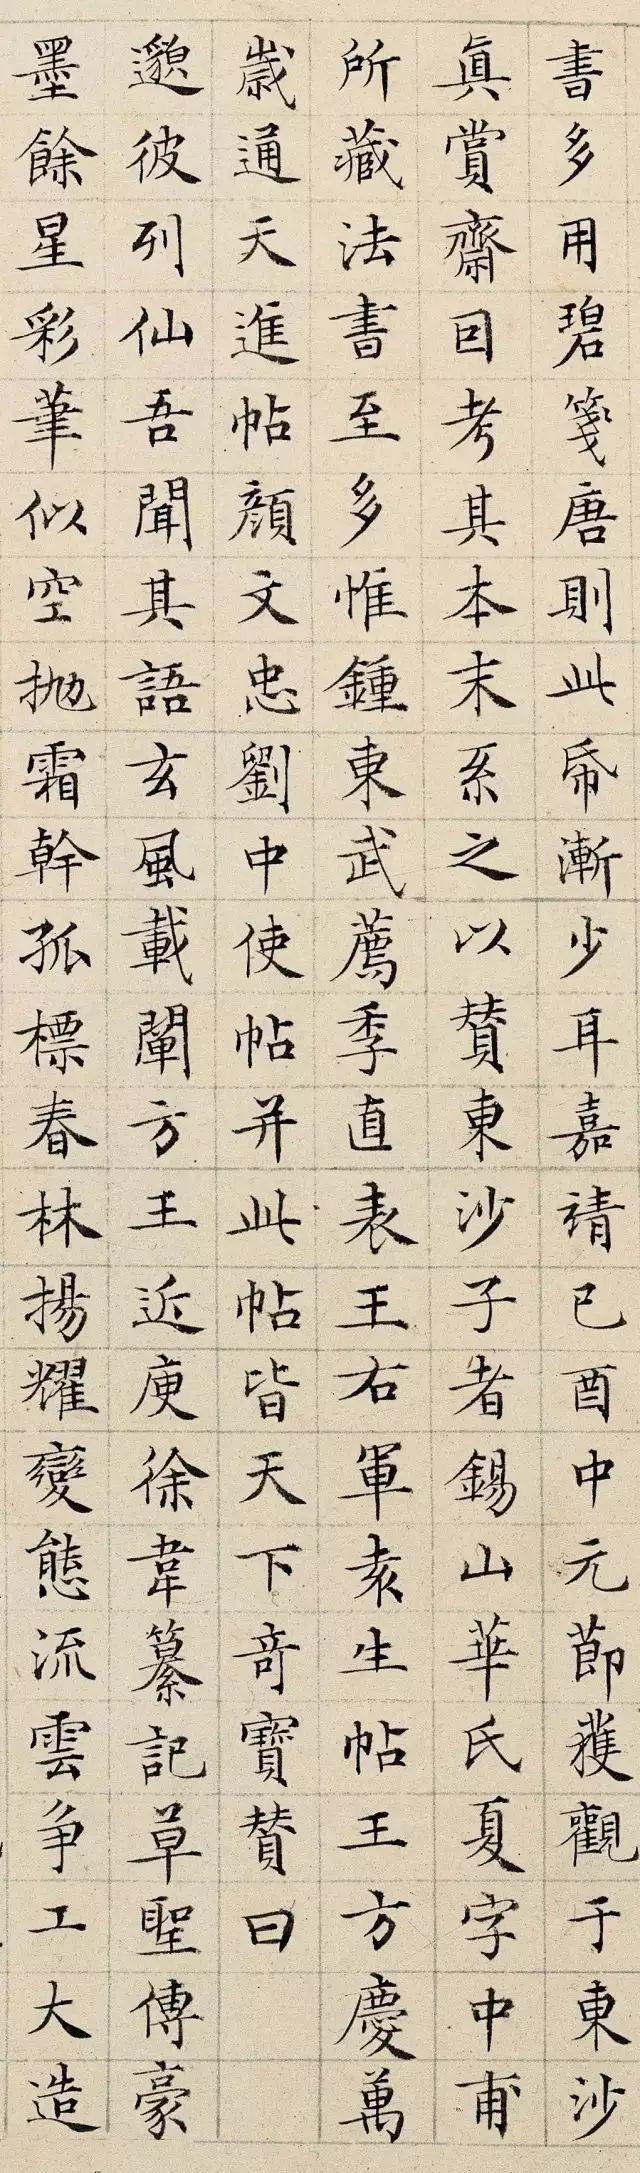 書多用碧箋唐則此帋漸少耳嘉靖己酉中元節獲觀于東沙
眞賞齋因考其本末系之以贊東沙子者錫山華氏夏字中甫
所藏法書至多惟鍾東武薦季直表王右軍袁生帖王方慶萬
歲通天進帖顏文忠劉中使帖并此帖皆天下奇寶贊曰
邈彼列仙吾聞其語玄風載闡方王近庾徐韋纂記草聖傳豪
墨餘星彩筆似空拋霜幹孤標春林揚耀變態流雲争工大造